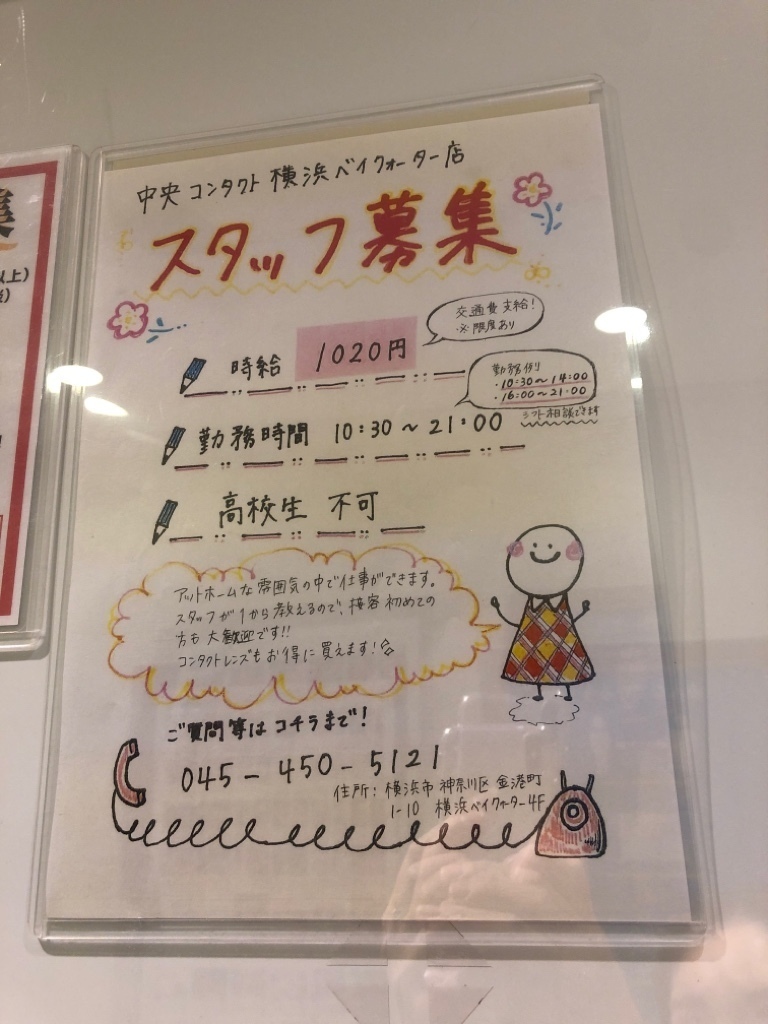 中央コンタクト 横浜ベイクォーター店
スタッフ募集
時給 1020円
交通費支給!
※限度あり
勤務時間 10:30～21:00
勤務例
・10:30～14:00
・16:00～21:00
シフト相談できます
高校生 不可
アットホームな雰囲気の中で仕事ができます。
スタッフが1から教えるので、接客初めての
方も大歓迎です!!
コンタクトレンズもお得に買えます!☆
ご質問等はコチラまで!
045-450-5121
住所:横浜市神奈川区金港町
1-10 横浜ベイクォーター4F